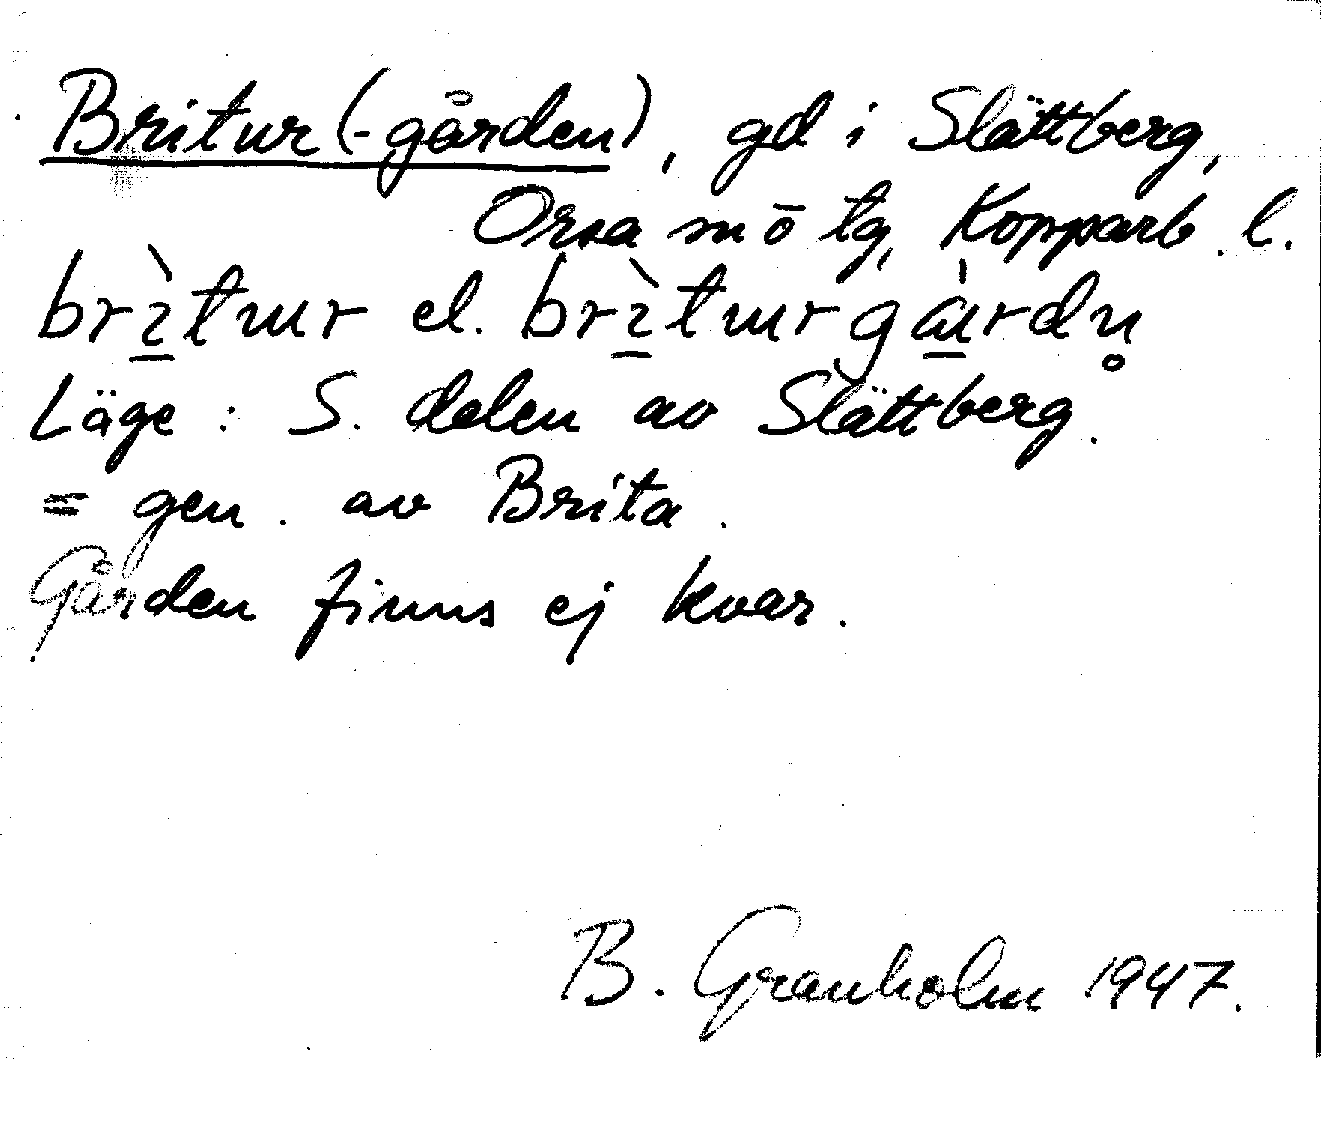 Britur (-gården), gd i Slättberg,
Orsa sn ō tg, Kopparb. l.
brı̲̀tɯr el. brı̲̀tɯrgà̲rdn̥
Läge: S. delen av Slättberg.
= gen. av Brita.
Gården finns ej kvar.
B. Granholm 1947.